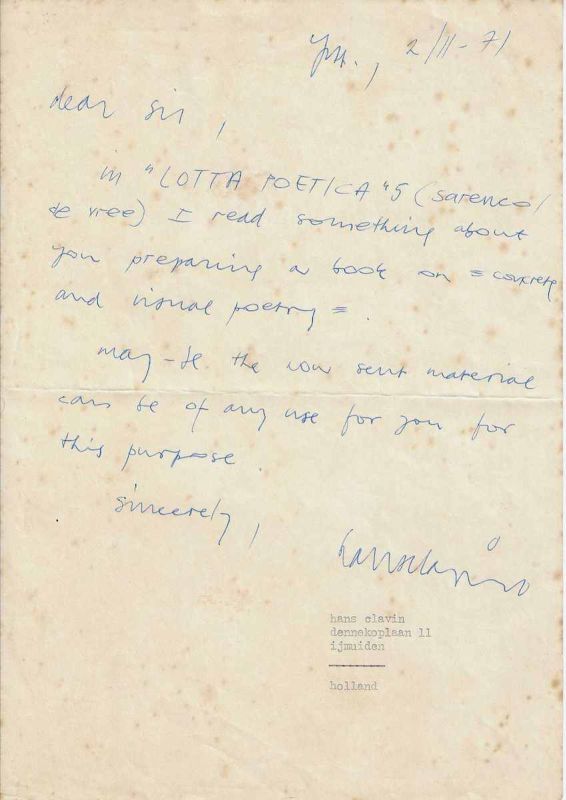 IJm., 2/11-71
dear sir,
in "LOTTA POETICA" 5 (sarenco/
de vree) I read something about
you preparing a book on = concrete
and visual poetry = .
may-be the now sent material
can be of any use for you for
this purpose.
sincerely,
hans clavin
hans clavin
dennekoplaan 11
ijmuiden
holland